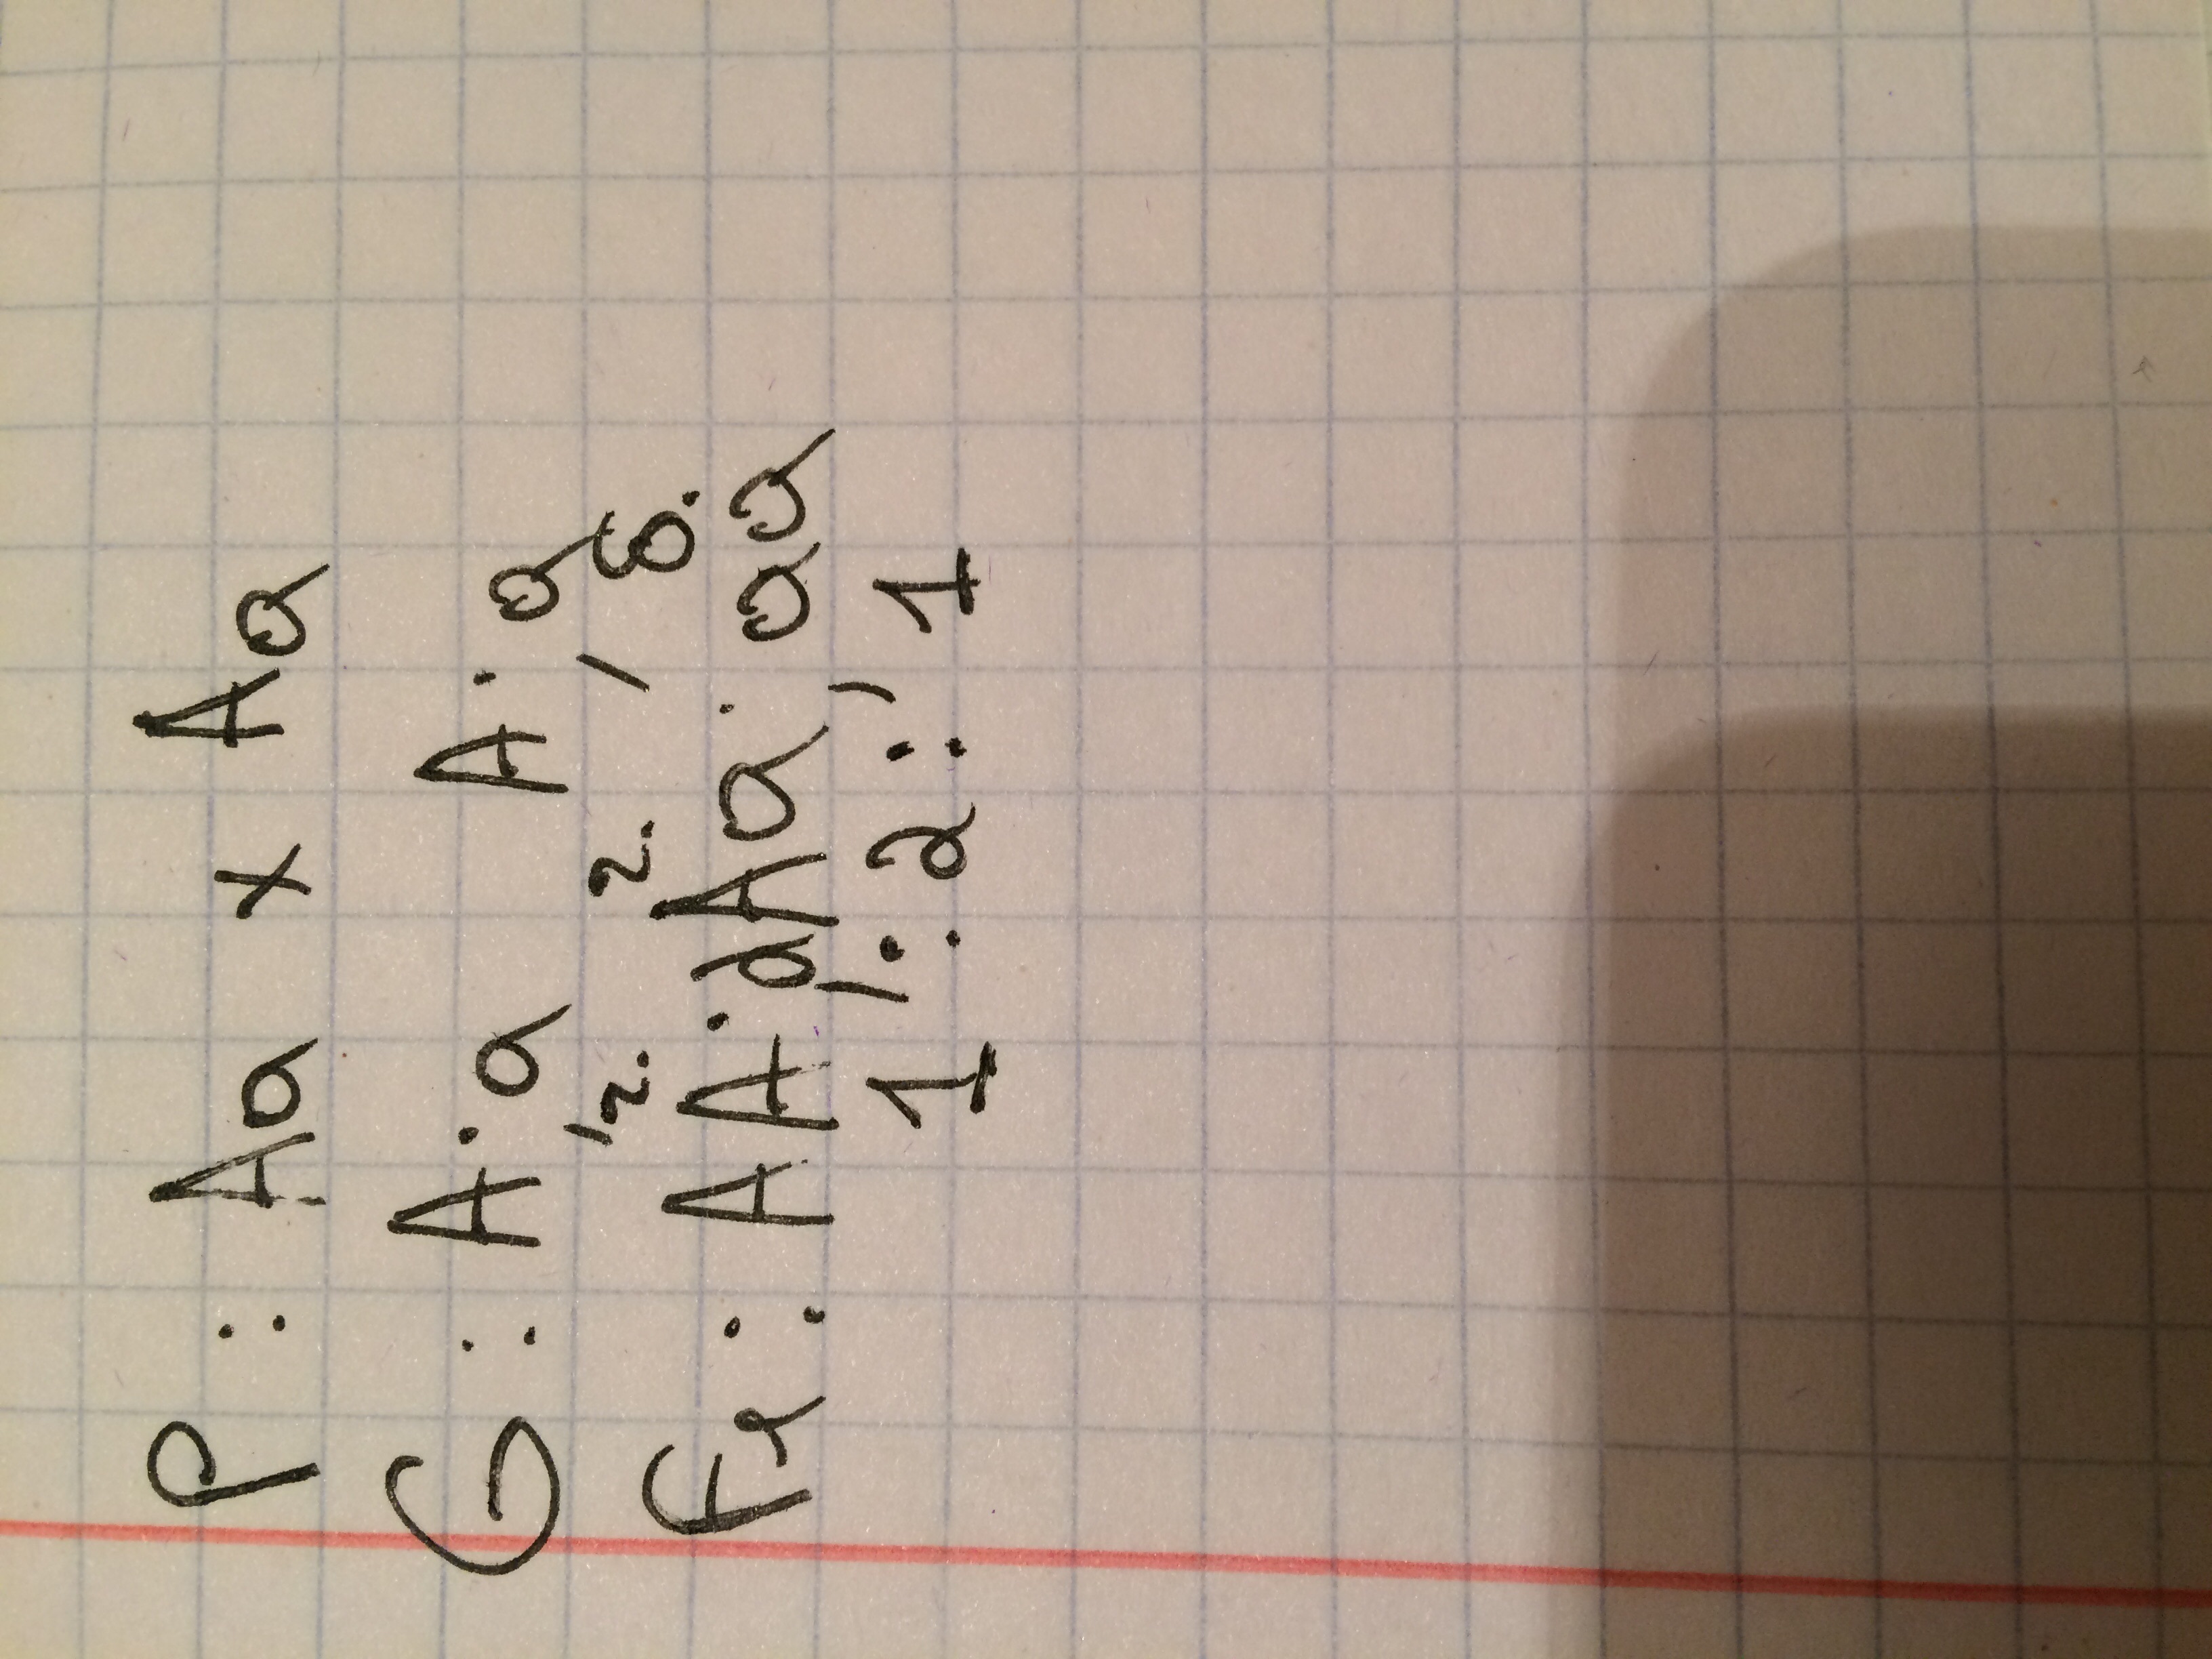 P : Aa x Aa
G : A; a A; a
г. г. б.
F2 : AA; 2Aa; aa
1 : 2 : 1